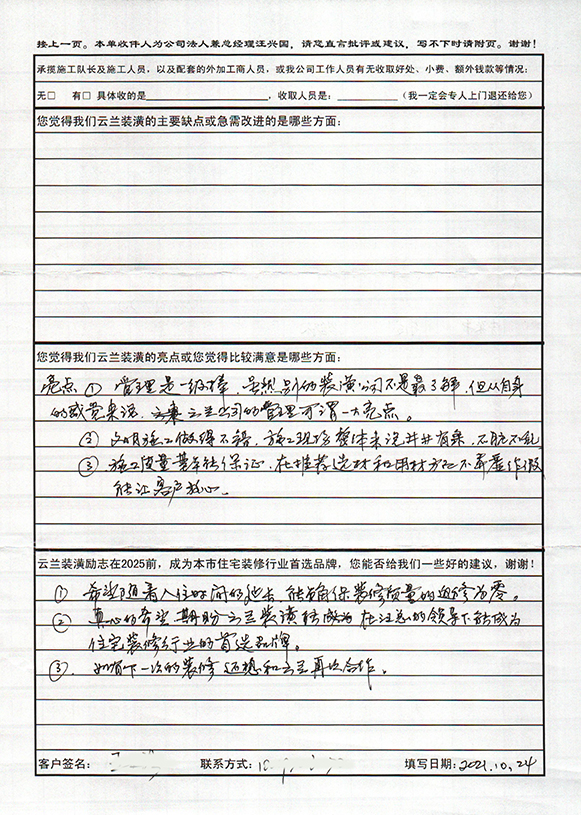 接上一页。本单收件人为公司法人兼总经理汪兴国，请您直言批评或建议，写不下时请附页。谢谢！
承揽施工队长及施工人员，以及配套的外加工商人员，或我公司工作人员有无收取好处、小费、额外钱款等情况：
无□ 有□ 具体收的是____________，收取人员是：________（我一定会专人上门退还给您）
您觉得我们云兰装潢的主要缺点或急需改进的是哪些方面：
您觉得我们云兰装潢的亮点或您觉得比较满意是哪些方面：
亮点 ① 管理是一级棒，虽然别的装潢公司不是最了解，但从自身
的感觉来说，云兰公司的管理可谓一大亮点。
② 文明施工做得不错，施工现场整体来说井井有条，不脏不乱
③ 施工质量基本能保证，在推荐选材和用材方面不弄虚作假
能让客户放心。
云兰装潢励志在2025前，成为本市住宅装修行业首选品牌，您能否给我们一些好的建议，谢谢！
① 希望随着入住时间的地长 能确保装修质量的返修为零。
② 真心的希望期盼云兰装潢能成为在汪总的领导下能成为
住宅装修行业的首选品牌。
③. 如有下一次的装修 还想和云兰再次合作。
客户签名： 联系方式： 填写日期：2021.10.24